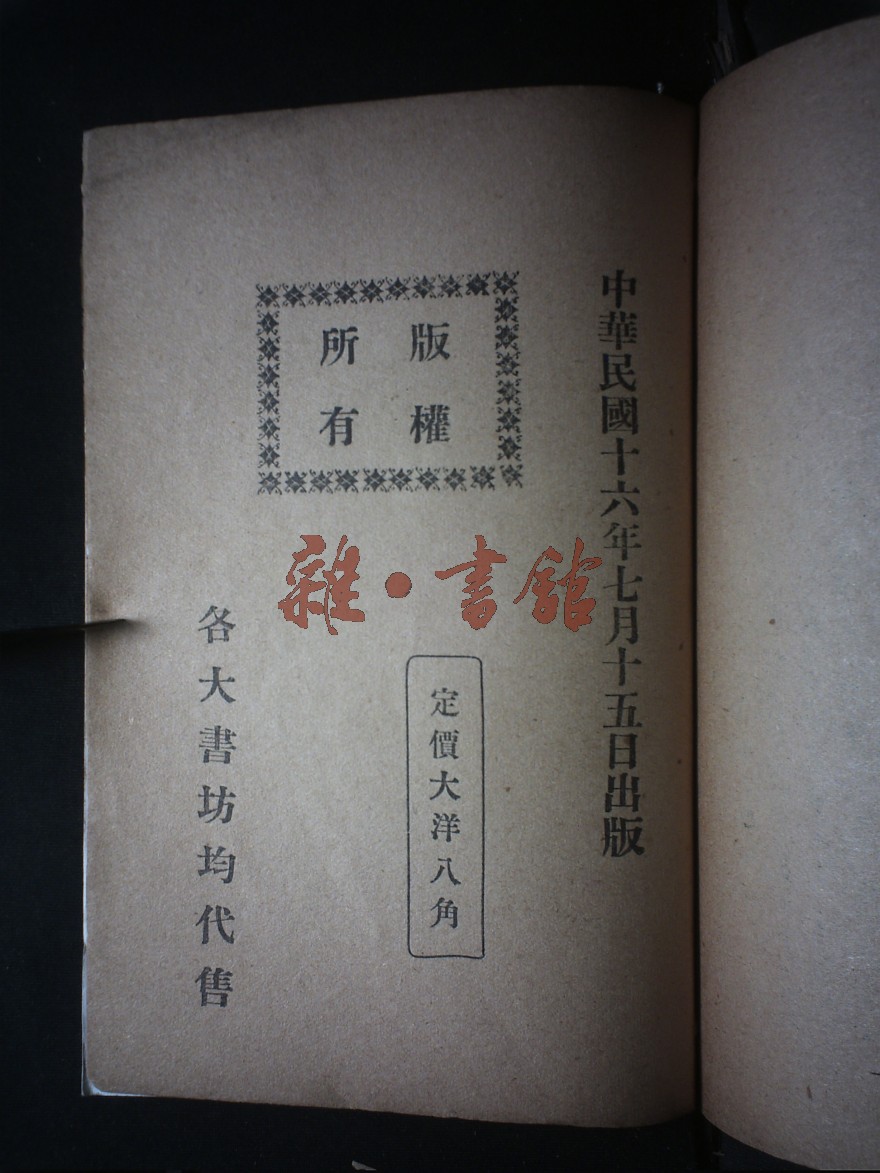 中華民國十六年七月十五日出版
版權
所有
定價大洋八角
各大書坊均代售
雜·書館